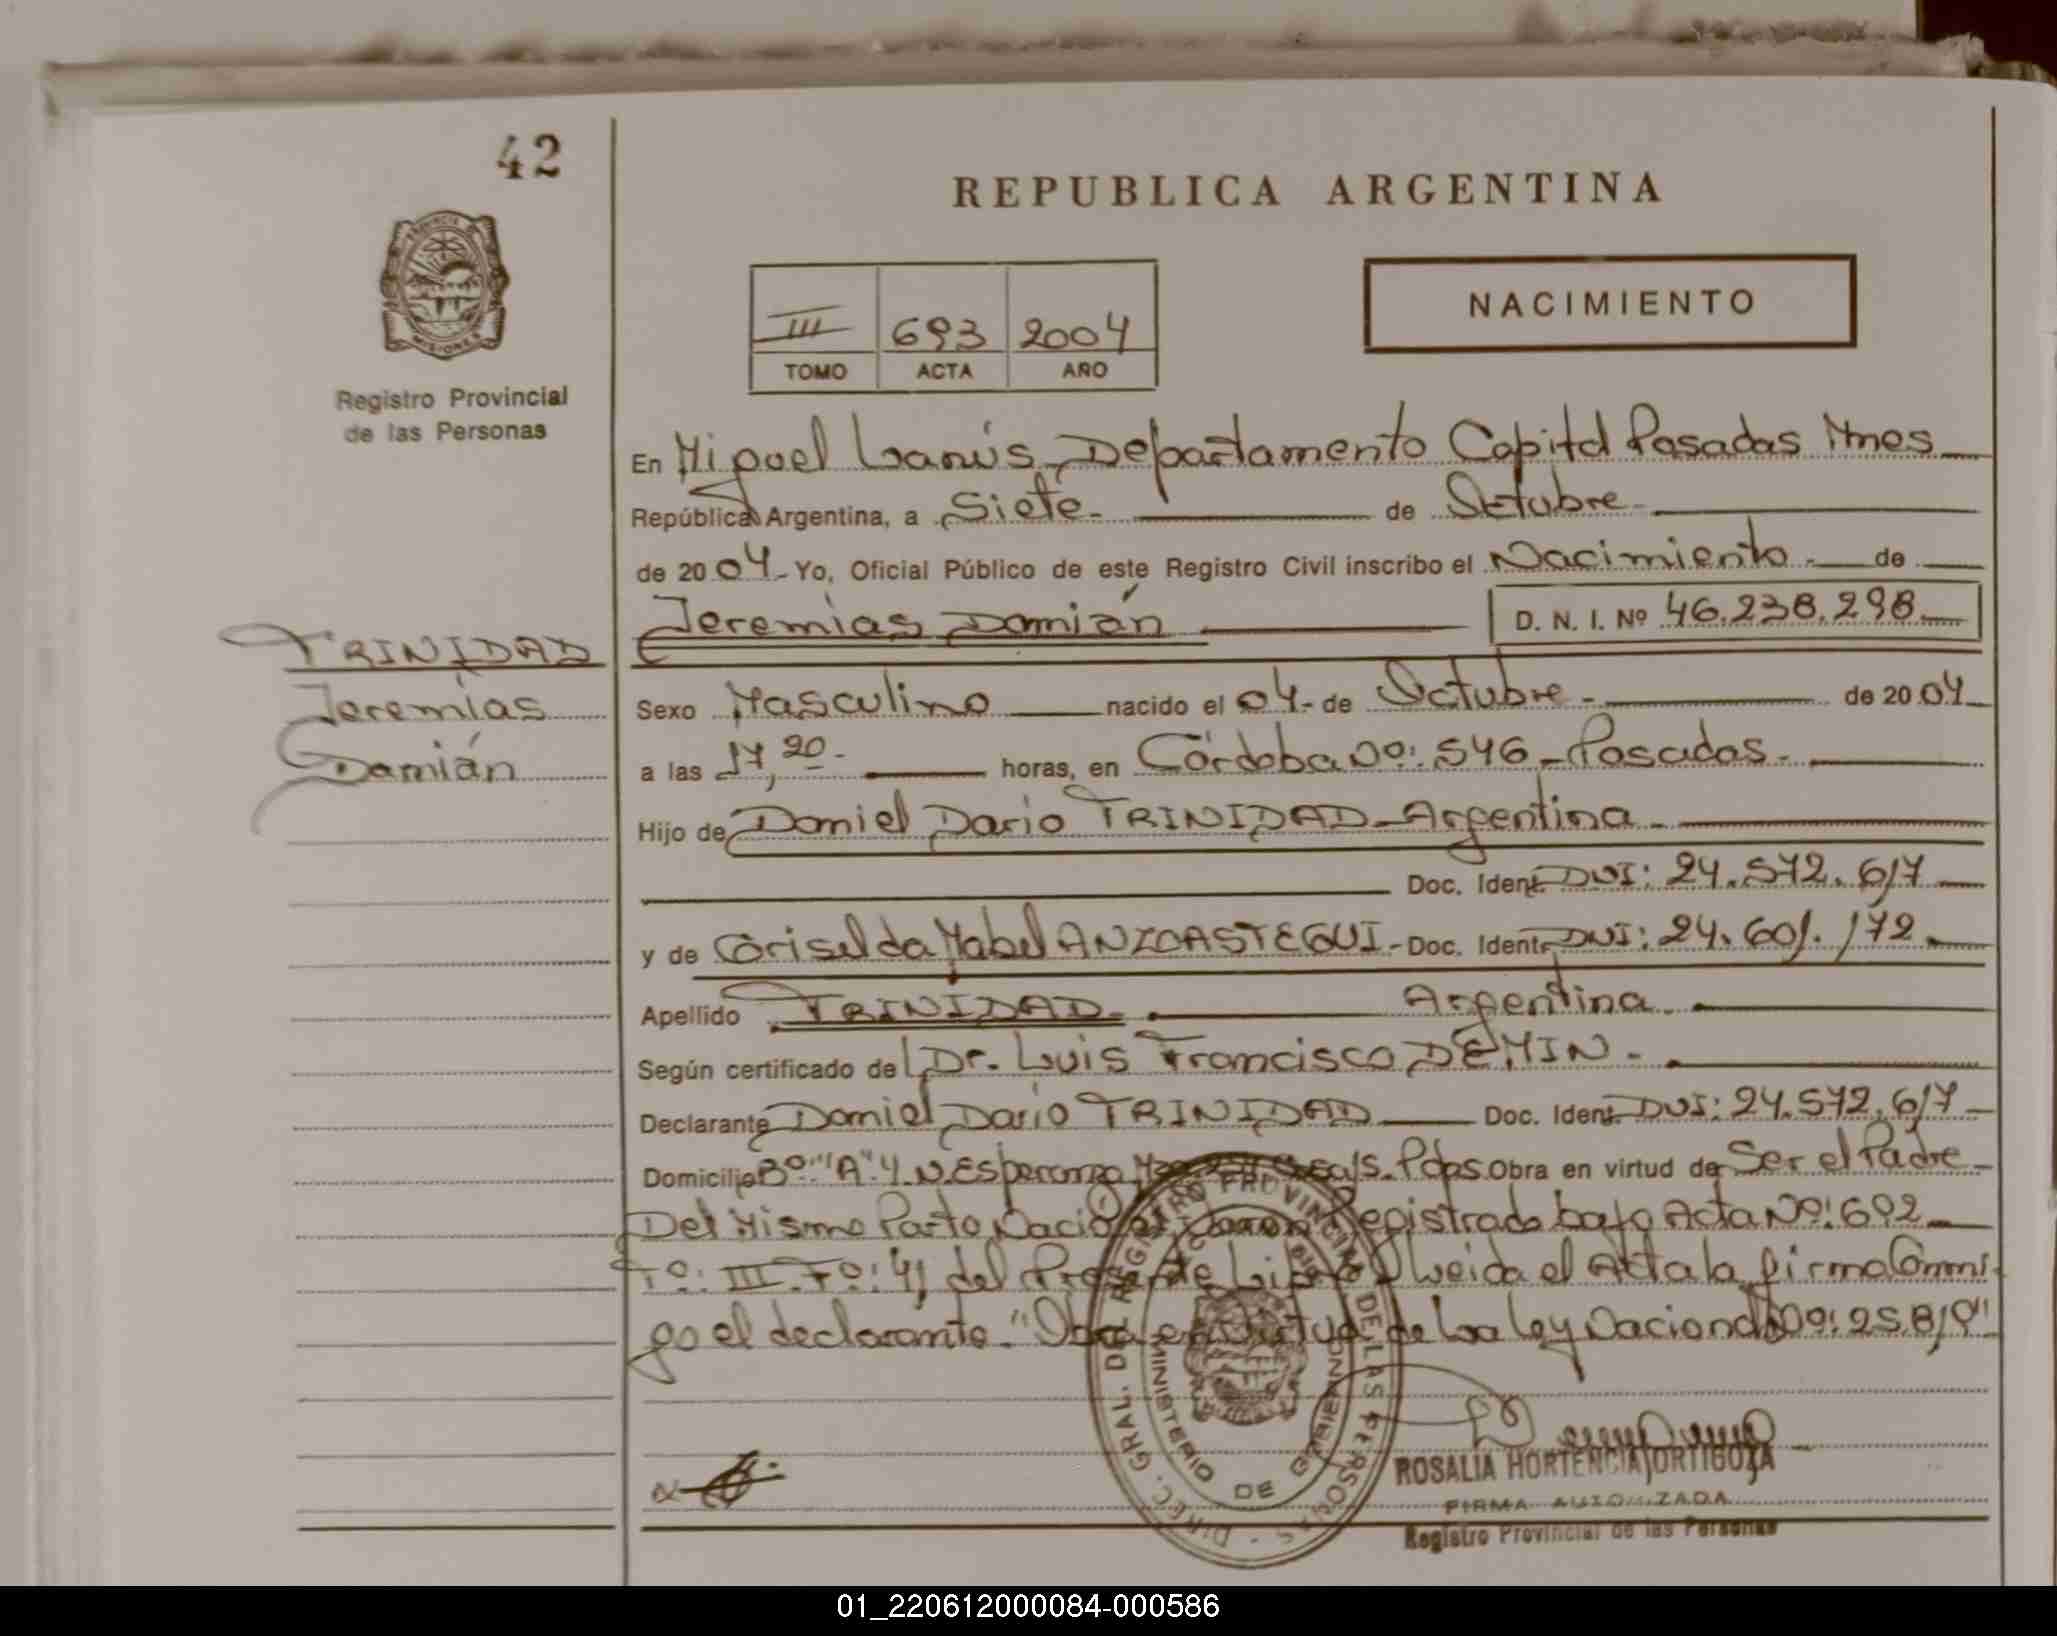 42
REPUBLICA ARGENTINA
PROVINCIA DE
MISIONES
Registro Provincial
de las Personas
III 693 2004
TOMO ACTA AÑO
NACIMIENTO
En Miguel Lanús Departamento Capital Posadas Mnes
República Argentina, a Siete de Octubre
de 2004 Yo, Oficial Público de este Registro Civil inscribo el Nacimiento de
Jeremías Damián D. N. I. Nº 46.238.298
TRINIDAD
Jeremías
Damián
Sexo Masculino nacido el 04 de Octubre de 2004
a las 17,20 horas, en Córdoba Nº: 546 - Posadas
Hijo de Daniel Dario TRINIDAD - Argentina
Doc. Ident. DNI: 24.572.617
y de Griselda Mabel ANZOASTEGUI - Doc. Ident. DNI: 24.601.172
Apellido TRINIDAD Argentina
Según certificado de Dr. Luis Francisco DEMIN
Declarante Daniel Dario TRINIDAD Doc. Ident. DNI: 24.572.617
Domicilio Bº "A" 4 N. Esperanza Pdas Obra en virtud de Ser el Padre
Del Mismo Parto Nació Registrado bajo Acta Nº: 692
Tº: III Fº: 41 del Presente Libro Leida el Acta la firma Conmi
go el declarante. "Obra en Virtud de La Ley Nacional Nº: 25.819"
DIREC. GRAL. DEL REGISTRO PROVINCIAL DE LAS PERSONAS
MINISTERIO DE GOBIERNO
ROSALIA HORTENCIA ORTIGOZA
FIRMA AUTORIZADA
Registro Provincial de las Personas
01_220612000084-000586